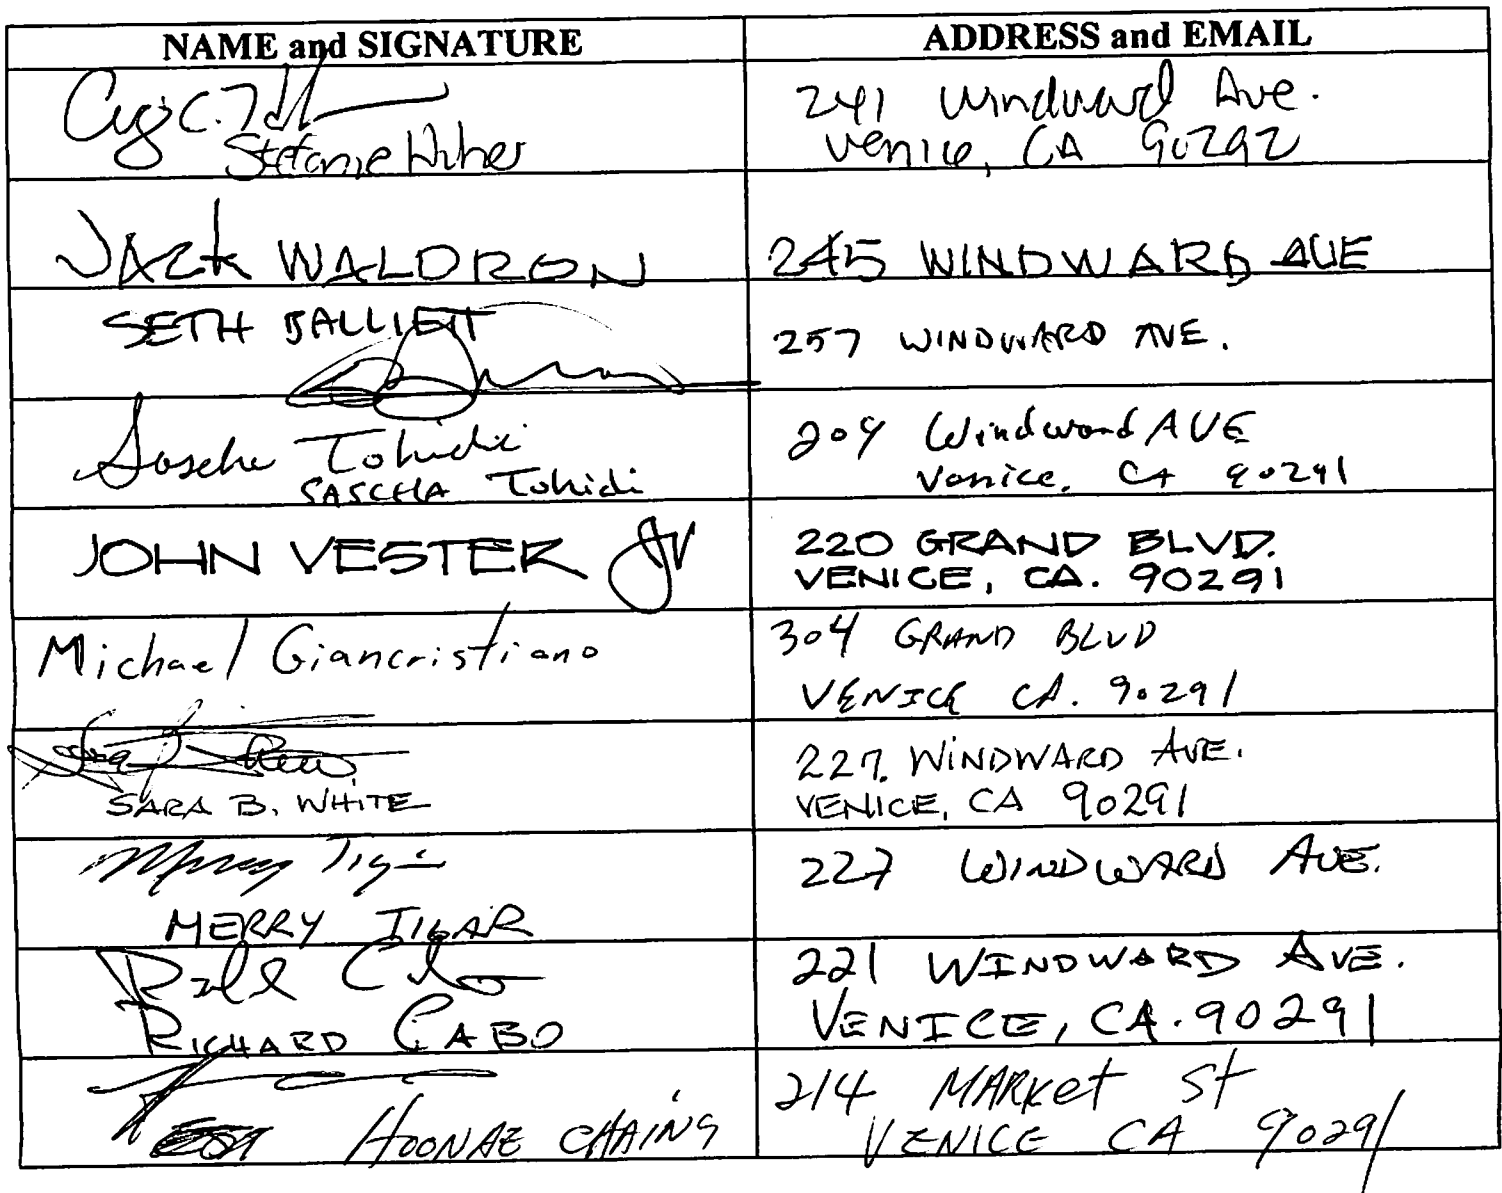 NAME and SIGNATURE
ADDRESS and EMAIL
Stefanie Huber
241 Windward Ave.
Venice, CA 90292
JACK WALDRON
245 WINDWARD AVE
SETH BALLIETT
257 WINDWARD AVE.
Sascha Tohidi
SASCHA Tohidi
209 Windward AVE
Venice, CA 90291
JOHN VESTER JV
220 GRAND BLVD.
VENICE, CA. 90291
Michael Giancristiano
304 GRAND BLVD
VENICE CA. 90291
SARA B. WHITE
227 WINDWARD AVE.
VENICE, CA 90291
Merry Tigar
MERRY TIGAR
227 WINDWARD AVE.
RICHARD CABO
221 WINDWARD AVE.
VENICE, CA. 90291
HOONAE CHAING
214 MARKET St
VENICE CA 90291